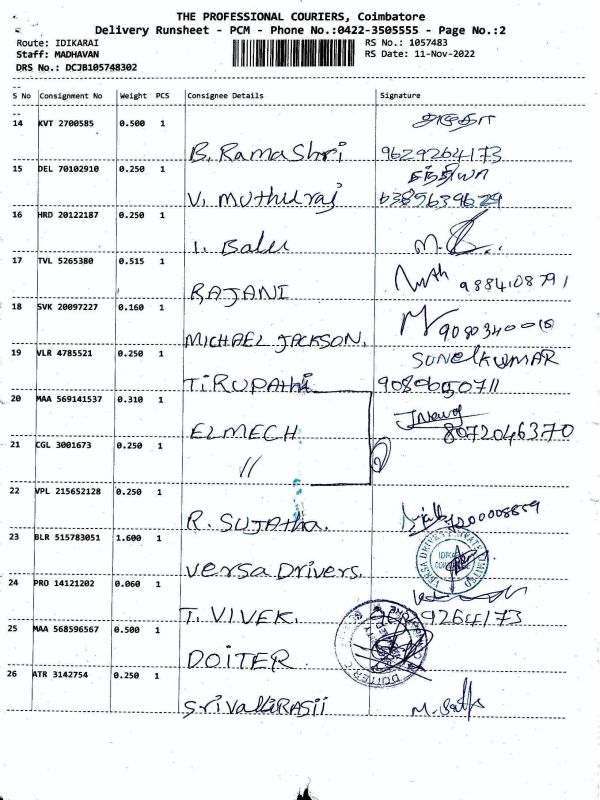 THE PROFESSIONAL COURIERS, Coimbatore
Delivery Runsheet - PCM - Phone No.:0422-3505555 - Page No.:2
Route: IDIKARAI RS No.: 1057483
Staff: MADHAVAN RS Date: 11-Nov-2022
DRS No.: DCJB105748302
S No Consignment No Weight PCS Consignee Details Signature
14 KVT 2700585 0.500 1
B. RamaShri 9629264173
15 DEL 70102910 0.250 1
V. muthuraj 6385639629
16 HRD 20122187 0.250 1
I. Balu
17 TVL 5265380 0.515 1
RAJANI 9884108791
18 SVK 20097227 0.160 1
MICHAEL JACKSON. 9080340010
19 VLR 4785521 0.250 1 SUNELKUMAR
TIRUPAthi 9089650711
20 MAA 569141537 0.310 1
ELMECH 8072046370
21 CGL 3001673 0.250 1
//
22 VPL 215652128 0.250 1
R. SUJAtha.
23 BLR 515783051 1.600 1
Versa Drivers. VERSA DRIVES PRIVATE LIMITED
24 PRO 14121202 0.060 1
T. VIVEK. 9264173
25 MAA 568596567 0.500 1
DOITER
26 ATR 3142754 0.250 1
SrivalliRASII